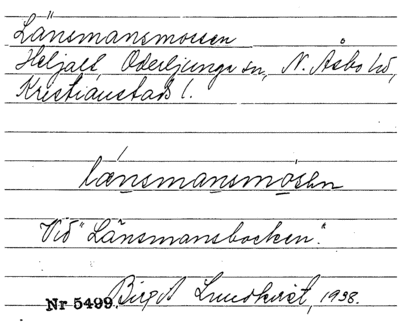 Länsmansmossen
Heljalt Oderljunga sn, N. Åsbo hd,
Kristianstads l.
lænsmansmósen
Vid "Länsmansbacken".
Nr 5499. Birgit Lundkvist, 1938.